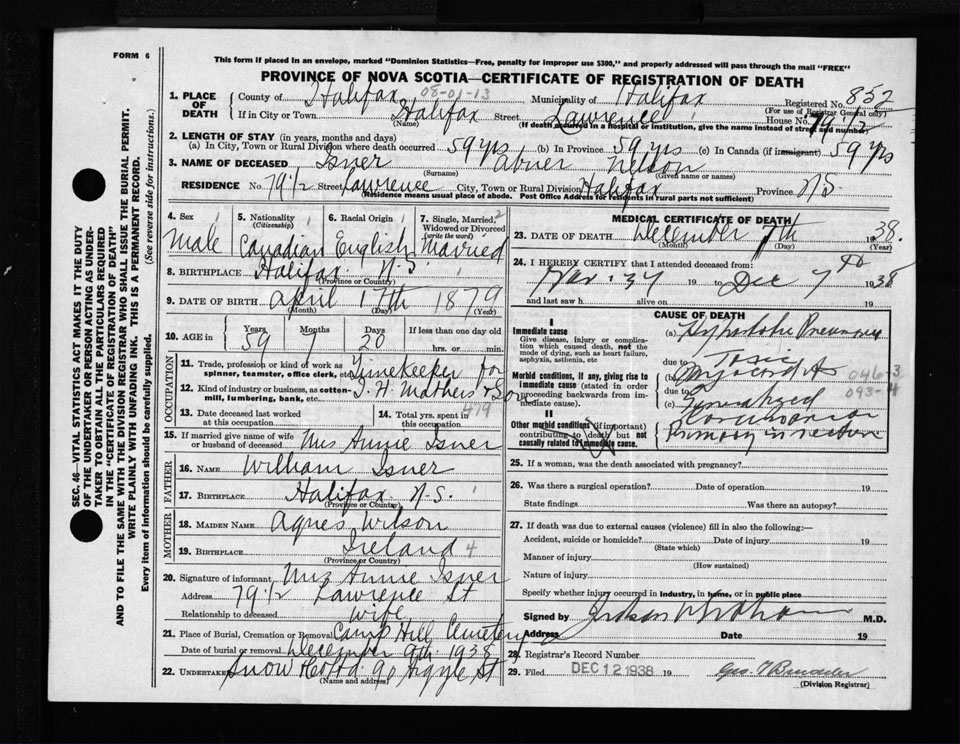 FORM 6
This form if placed in an envelope, marked "Dominion Statistics—Free, penalty for improper use $300," and properly addressed will pass through the mail "FREE"
PROVINCE OF NOVA SCOTIA—CERTIFICATE OF REGISTRATION OF DEATH
SEC. 46—VITAL STATISTICS ACT MAKES IT THE DUTY
OF THE UNDERTAKER OR PERSON ACTING AS UNDER-
TAKER TO OBTAIN ALL THE PARTICULARS REQUIRED
IN THE "CERTIFICATE OF REGISTRATION OF DEATH"
AND TO FILE THE SAME WITH THE DIVISION REGISTRAR WHO SHALL ISSUE THE BURIAL PERMIT.
WRITE PLAINLY WITH UNFADING INK. THIS IS A PERMANENT RECORD.
Every item of information should be carefully supplied. (See reverse side for instructions.)
1. PLACE OF DEATH County of Halifax 08-01-13 Municipality of Halifax Registered No. 852
(For use of Registrar General only)
If in City or Town Halifax Street Lawrence House No. 79 1/2
(Name) (If death occurred in a hospital or institution, give the name instead of street and number)
2. LENGTH OF STAY (in years, months and days)
(a) In City, Town or Rural Division where death occurred 59 yrs (b) In Province 59 yrs (c) In Canada (if immigrant) 59 yrs
3. NAME OF DECEASED Isner Abner Nelson
(Surname) (Given name or names)
RESIDENCE No. 79 1/2 Street Lawrence City, Town or Rural Division Halifax Province N.S.
(Residence means usual place of abode. Post Office Address for residents in rural parts not sufficient)
4. Sex Male
5. Nationality (Citizenship) Canadian
6. Racial Origin English
7. Single, Married, Widowed or Divorced (write the word) Married
8. BIRTHPLACE Halifax N.S.
(Province or Country)
9. DATE OF BIRTH April 17th 1879
(Month) (Day) (Year)
10. AGE in Years 59 Months 7 Days 20 If less than one day old hrs. or min.
OCCUPATION
11. Trade, profession or kind of work as spinner, teamster, office clerk, etc. Timekeeper for
12. Kind of industry or business, as cotton-mill, lumbering, bank, etc. I. H. Mathers & Son
13. Date deceased last worked at this occupation
14. Total yrs. spent in this occupation 479
15. If married give name of wife or husband of deceased Mrs Annie Isner
FATHER
16. NAME William Isner
17. BIRTHPLACE Halifax N.S.
(Province or Country)
MOTHER
18. MAIDEN NAME Agnes Wilson
19. BIRTHPLACE Ireland 4
(Province or Country)
20. Signature of informant Mrs Annie Isner
Address 79 1/2 Lawrence St
Relationship to deceased Wife
21. Place of Burial, Cremation or Removal Camp Hill Cemetery
Date of burial or removal December 9th 1938
22. Undertaker Snow 90 Argyle St
(Name and address)
MEDICAL CERTIFICATE OF DEATH
23. DATE OF DEATH December 7th 1938.
(Month) (Day) (Year)
24. I HEREBY CERTIFY that I attended deceased from
37 19 to Dec 7th 1938
and last saw h alive on 19
CAUSE OF DEATH
I
Immediate cause
Give disease, injury or complication which caused death, not the mode of dying, such as heart failure, asphyxia, asthenia, etc
(a) Hypostatic Pneumonia
due to
Morbid conditions, if any, giving rise to immediate cause (stated in order proceeding backwards from immediate cause).
(b) Toxic Myocarditis 046-3
093-4
due to
(c) Generalized Carcinoma
II
Other morbid conditions (if important) contributing to death but not causally related to immediate cause.
Primary in rectum
25. If a woman, was the death associated with pregnancy?
26. Was there a surgical operation? Date of operation 19
State findings Was there an autopsy?
27. If death was due to external causes (violence) fill in also the following:—
Accident, suicide or homicide? Date of injury 19
(State which)
Manner of injury
(How sustained)
Nature of injury
Specify whether injury occurred in industry, in home, or in public place
Signed by M.D.
Address Date 19
28. Registrar's Record Number
29. Filed DEC 12 1938 19
(Division Registrar)